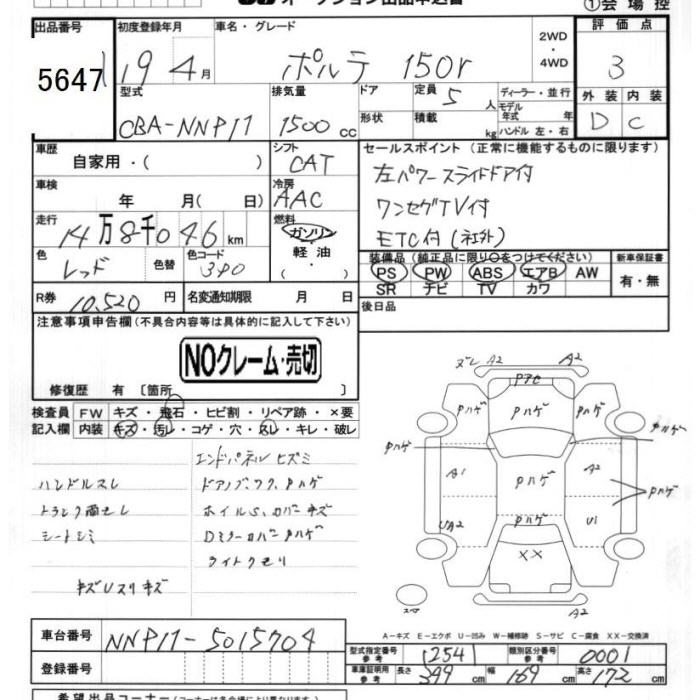 ①会場控
出品番号 初度登録年月 車名・グレード 2WD・4WD 評価点
5647 19 4月 ポルテ 150r 3
型式 排気量 ドア 定員 5人 ディーラー・並行 外装 内装
CBA-NNP11 1500cc 形状 積載 kg モデル年式 年 ハンドル 左・右 D C
車歴 自家用・( ) シフト CAT セールスポイント(正常に機能するものに限ります)
車検 年 月(日) 冷房 AAC 左パワースライドドア付
走行 14万8千046km 燃料 ガソリン・軽油・( ) ワンセグTV付
ETC付(社外)
色 レッド 色替 色コード 3P0 装備品(純正品に限り○をつけてください) 新車保証書
PS PW ABS エアB AW 有・無
SR ナビ TV カワ
R券 10,520円 名変通知期限 月 日 後日品
注意事項申告欄(不具合内容等は具体的に記入して下さい)
NOクレーム・売切
修復歴 有〔箇所 〕
検査員記入欄 FW キズ・飛石・ヒビ割・リペア跡・×要
内装 キズ・汚レ・コゲ・穴・スレ・キレ・破レ
エンドパネル ヒズミ
ハンドルスレ ドアノブ、フク、Pハゲ
ホイルS、カバーキズ
シートシミ Dミラーカバー Pハゲ
ライトクモリ
ズレ A2 A2
Pハゲ Pハゲ Pハゲ
Pハゲ Pハゲ
A1 Pハゲ A2 Pハゲ
UA2 Pハゲ U1
××
スペア
A-キズ E-エクボ U-凹み W-補修跡 S-サビ C-腐食 XX-交換済
車台番号 NNP11-5015704
型式指定番号 参考 1254 類別区分番号 参考 0001
登録番号 車庫証明用 参考 長さ 399cm 幅 169cm 高さ 172cm
希望出品コーナー